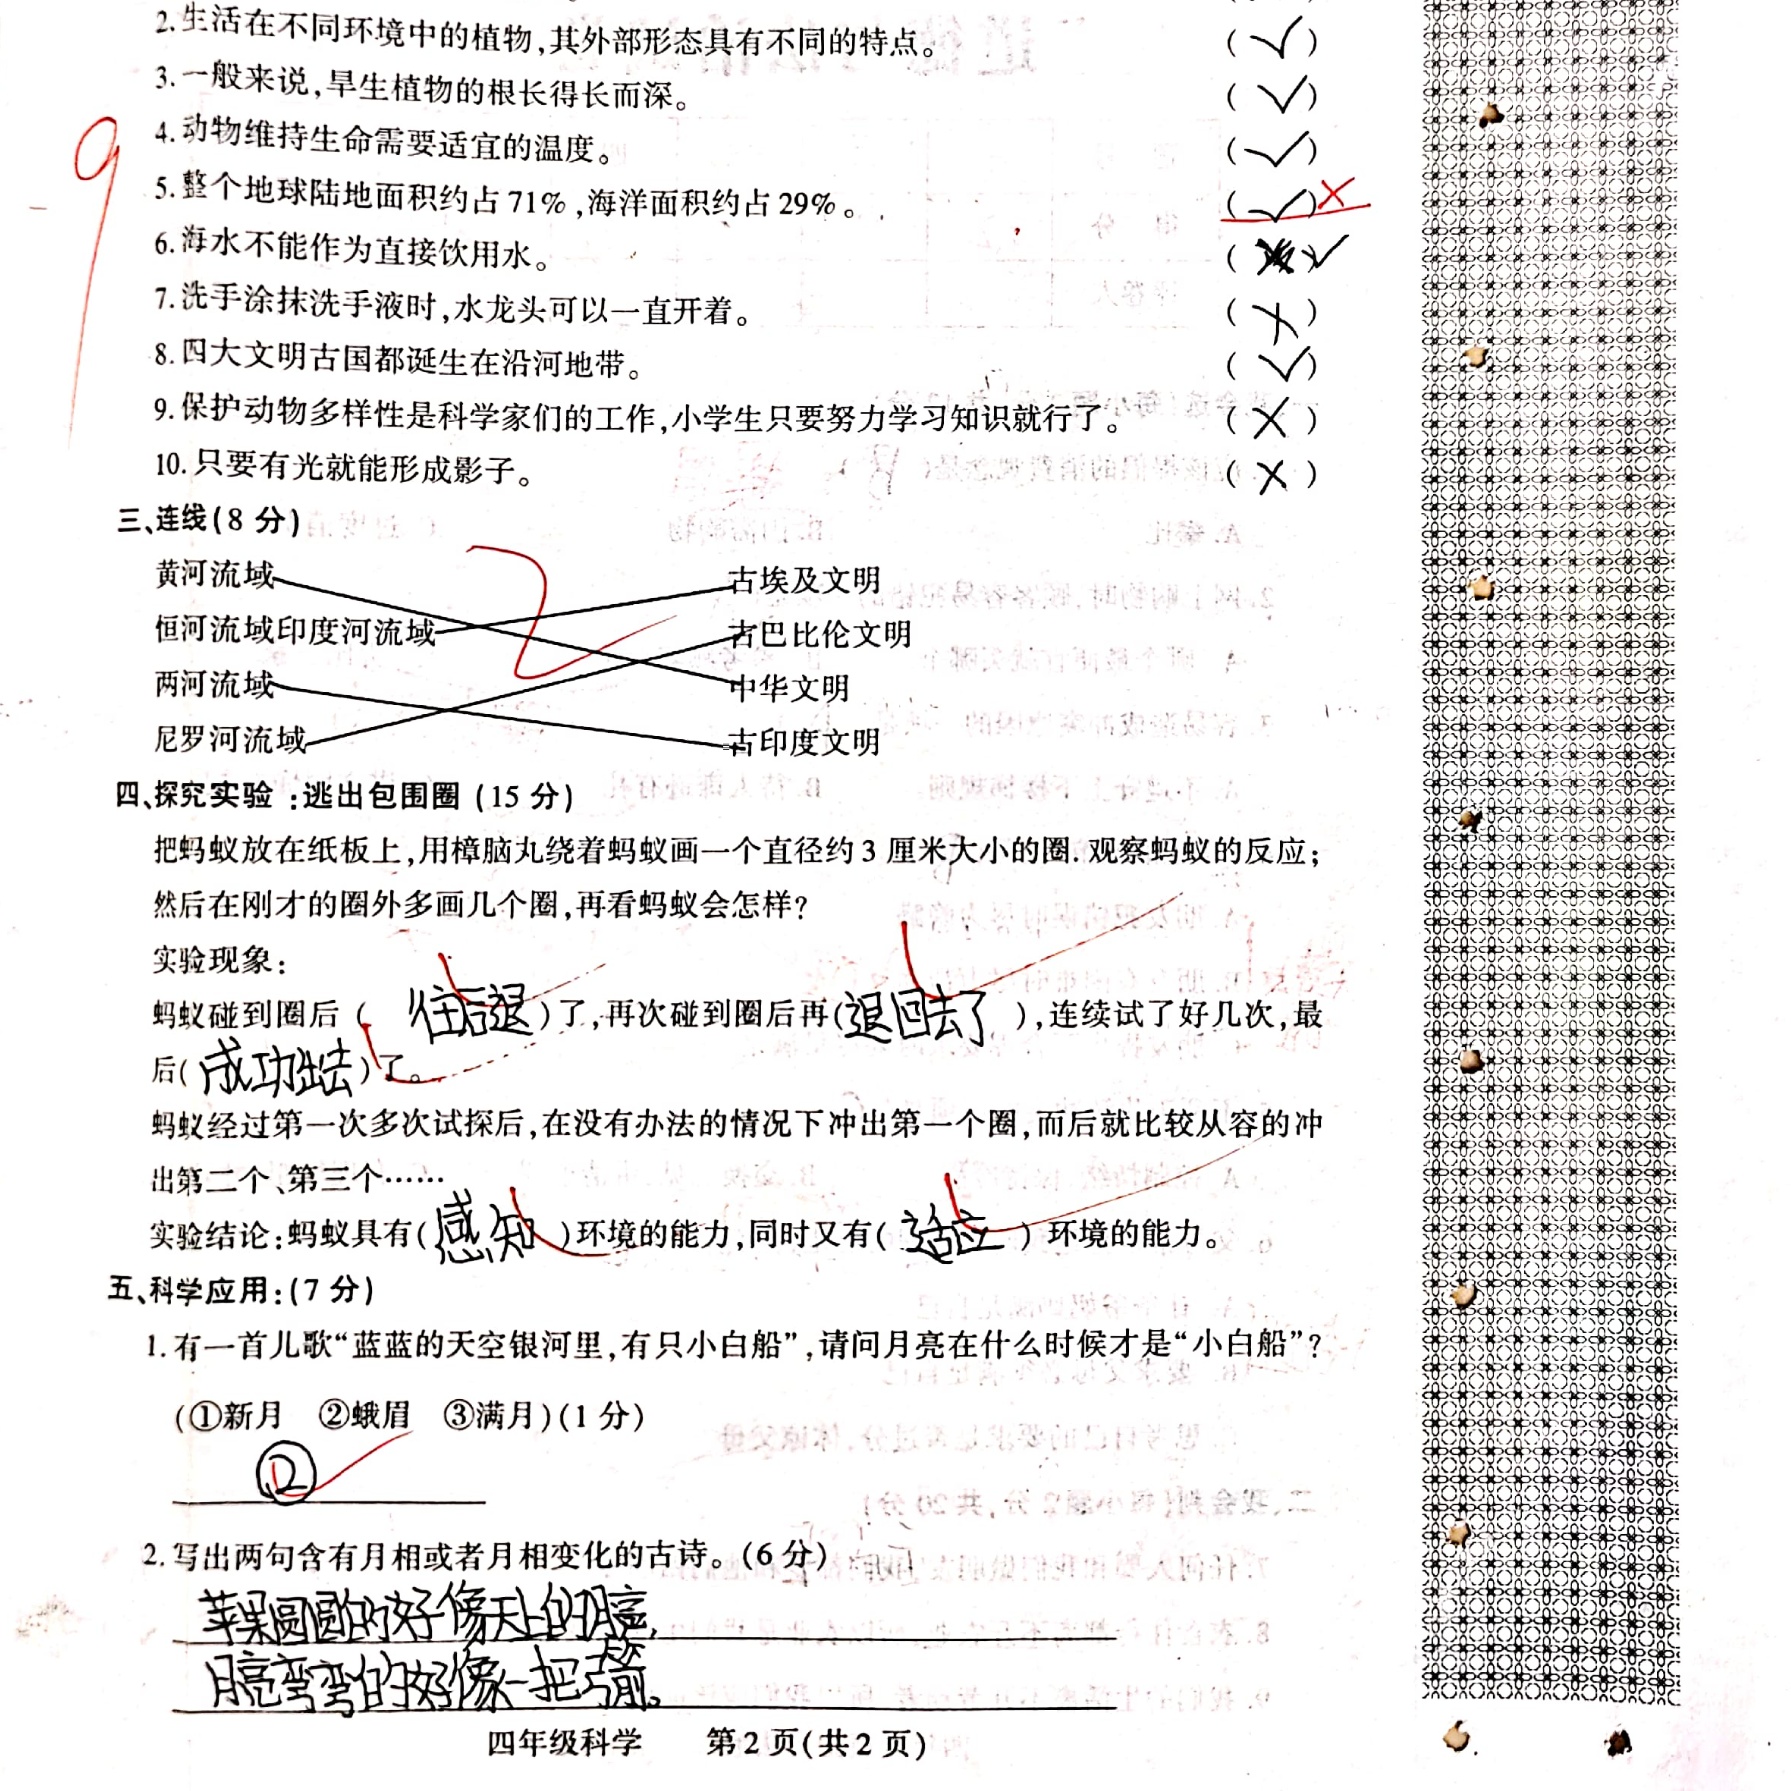 2.生活在不同环境中的植物,其外部形态具有不同的特点。 (✓)
3.一般来说,旱生植物的根长得长而深。 (✓)
4.动物维持生命需要适宜的温度。 (✓)
5.整个地球陆地面积约占71%,海洋面积约占29%。 (✓)×
6.海水不能作为直接饮用水。 ( )✓
7.洗手涂抹洗手液时,水龙头可以一直开着。 (×)
8.四大文明古国都诞生在沿河地带。 (✓)
9.保护动物多样性是科学家们的工作,小学生只要努力学习知识就行了。 (×)
10.只要有光就能形成影子。 (×)
-9
三、连线(8分)
黄河流域 古埃及文明
恒河流域印度河流域 古巴比伦文明
两河流域 中华文明
尼罗河流域 古印度文明
2
四、探究实验:逃出包围圈(15分)
把蚂蚁放在纸板上,用樟脑丸绕着蚂蚁画一个直径约3厘米大小的圈.观察蚂蚁的反应;
然后在刚才的圈外多画几个圈,再看蚂蚁会怎样?
实验现象:
蚂蚁碰到圈后(往后退)了,再次碰到圈后再(退回去了),连续试了好几次,最
后(成功出去)了。
蚂蚁经过第一次多次试探后,在没有办法的情况下冲出第一个圈,而后就比较从容的冲
出第二个、第三个……
实验结论:蚂蚁具有(感知)环境的能力,同时又有(适应)环境的能力。
五、科学应用:(7分)
1.有一首儿歌“蓝蓝的天空银河里,有只小白船”,请问月亮在什么时候才是“小白船”?
(①新月 ②蛾眉 ③满月)(1分)
②
2.写出两句含有月相或者月相变化的古诗。(6分)
苹果圆圆的好像天上的月亮,
月亮弯弯的好像一把弓箭。
四年级科学 第2页(共2页)